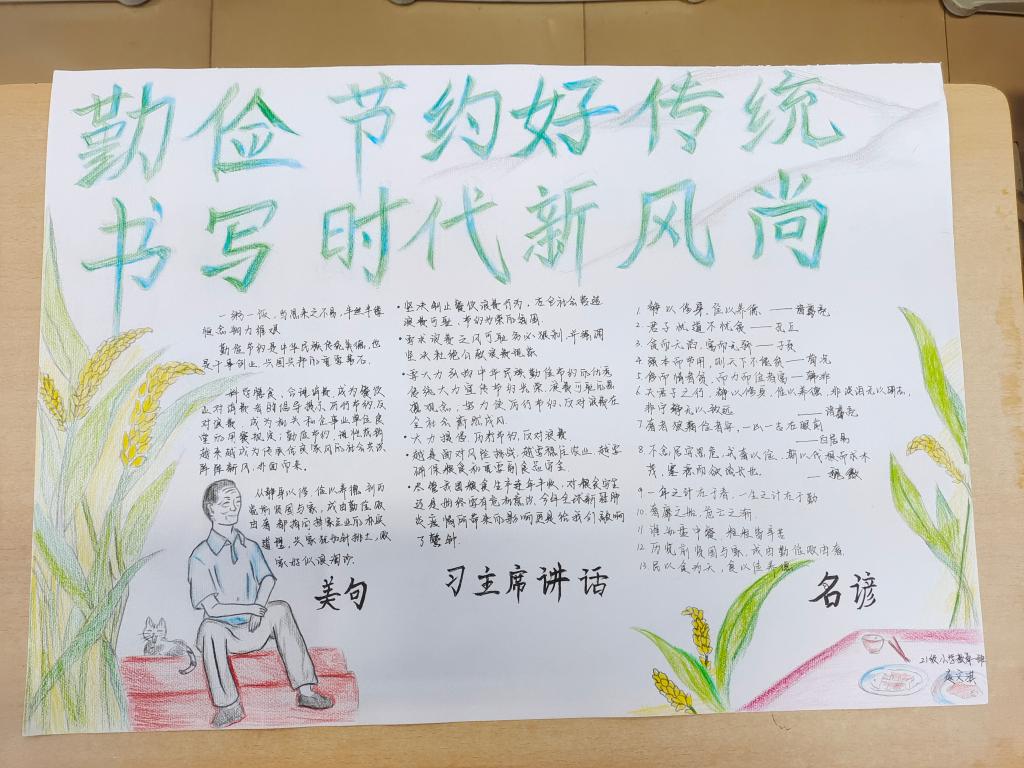 勤俭节约好传统
书写时代新风尚
一粥一饭，当思来之不易，半丝半缕
恒念物力维艰
勤俭节约是中华民族传统美德，也
是干事创业、兴国兴邦的重要基石。
科学膳食、合理消费，成为餐饮
对浪费，成为机关和企事业单位食
堂的用餐规定；勤俭节约、
越来越成为传承优良家风的社会共识
阵阵新风，扑面而来。
从静以修身，俭以养德，到历
览前贤国与家，成由勤俭败
道理，兴家犹如针挑土，败
家好似浪淘沙。
美句
·坚决制止餐饮浪费行为，在全社会营造
浪费可耻、节约为荣的氛围
·舌尖浪费之风可耻务必狠刹，并强调
坚决杜绝公款浪费现象
·要大力弘扬中华民族勤俭节约的优秀
传统大力宣传节约光荣、浪费可耻的思
想观念，努力使厉行节约、反对浪费在
全社会蔚然成风
·大力提倡厉行节约，反对浪费
·越是面对风险挑战，越要稳住农业，越要
确保粮食和重要副食品安全
·尽管我国粮食生产连年丰收，对粮食安全
还是始终要有危机意识，今年全球新冠肺
炎疫情所带来的影响更是给我们敲响
了警钟
习主席讲话
1. 静以修身，俭以养德。——诸葛亮
2. 君子忧道不忧贫——孔丘
3. 贫而无谄，富而无骄——子贡
4. 强本而节用，则天下不能贫——荀况
5. 侈而惰者贫，而力而俭者富——韩非
6. 夫君子之行，静以修身，俭以养德，非淡泊无以明志，
非宁静无以致远 ——诸葛亮
——白居易
8. 不念居安思危，戒奢以俭，斯以伐根而求木
茂，塞源而欲流长也。——魏徵
9. 一年之计在于春，一生之计在于勤
11. 谁知盘中餐，粒粒皆辛苦
12. 历览前贤国与家，成由勤俭败由奢
13. 民以食为天，食以俭养德
名谚
21级小学教育一班